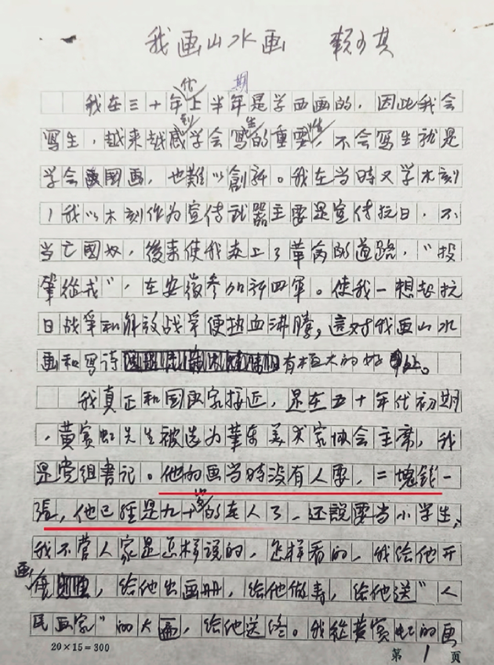 我画山水画 赖少其
我在三十年代上半期是学西画的，因此我会
写生，越来越感到学会写生的重要性，不会写生就是
学会国画，也难以创新。我在当时又学木刻
，我以木刻作为宣传武器主要是宣传抗日，不
当亡國奴，後来使我走上了革命的道路，“投
筆從戎”，在安徽参加新四軍。使我一想起抗
日战争和解放战争便热血沸腾，這对我画山水
画和写诗有極大的好处。
我真正和国画家接近，是在五十年代初期
，黄賓虹先生被选为華东美术家协会主席，我
是党组書记。他的画当時没有人要，二塊錢一
張，他已經是九十岁的老人了，还說要当小学生，
我不管人家是怎样說的，怎样看的，我给他开
画展，给他出画册，给他做寿，给他送“人
民画家”的大匾，给他送终。我從黄賓虹的画
20×15=300 第 1 页